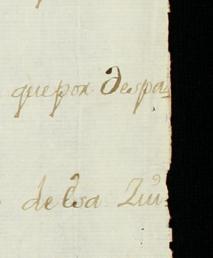 que por despa
de esa Ziu